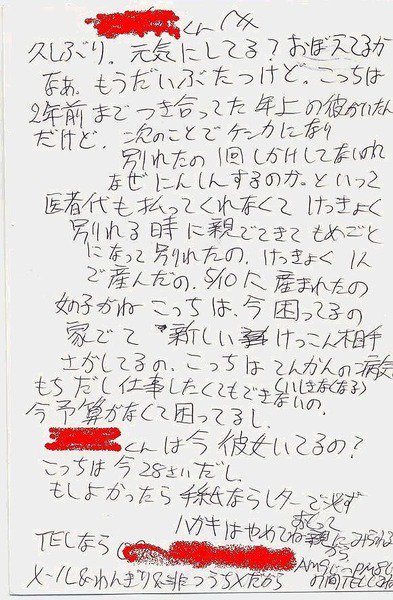 くんへ
久しぶり。元気にしてる?おぼえてるか
なあ。もうだいぶたつけど。こっちは
2年前まで つき合ってた 年上の彼がいたん
だけど。次のことでケンカになり
別れたの 1回しかけしてないのに
なぜにんしんするのか。といって
医者代も払ってくれなくて けっきょく
別れる時に親でてきてもめごと
になって別れたの。けっきょく 1人
で産んだの。5/10に産まれたの
女の子がね こっちは、今困ってるの
家でて 新しい けっこん相手
さがしてるの。こっちは てんかんの病気
もちだし仕事したくてもできないの。
(いしきなくなる)
今予算がなくて困ってるし。
くんは今彼女いてるの?
こっちは今28さいだし
もしよかったら 手紙ならレターで必ず
おくって
ハガキはやめてね 親にみられる
から
TELなら(
AM9じ〜PM8じ
の間TEL
メールわんぎり 非つうちXだから